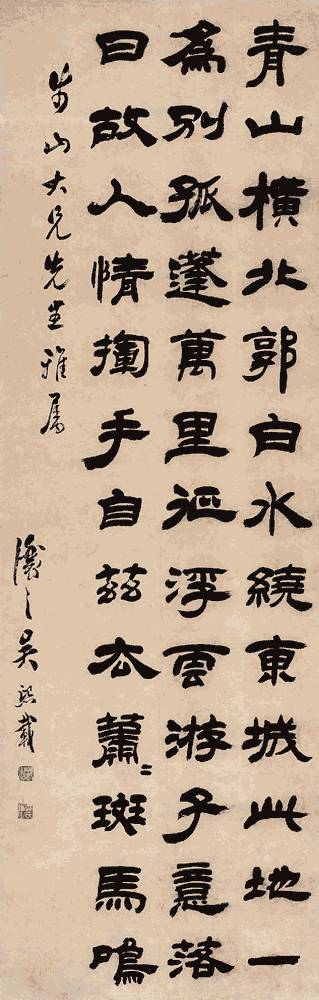 青山橫北郭白水繞東城此地一
爲別孤蓬萬里征浮雲游子意落
日故人情揮手自茲去蕭〻斑馬鳴
山大兄先生雅屬
讓之吳熙載